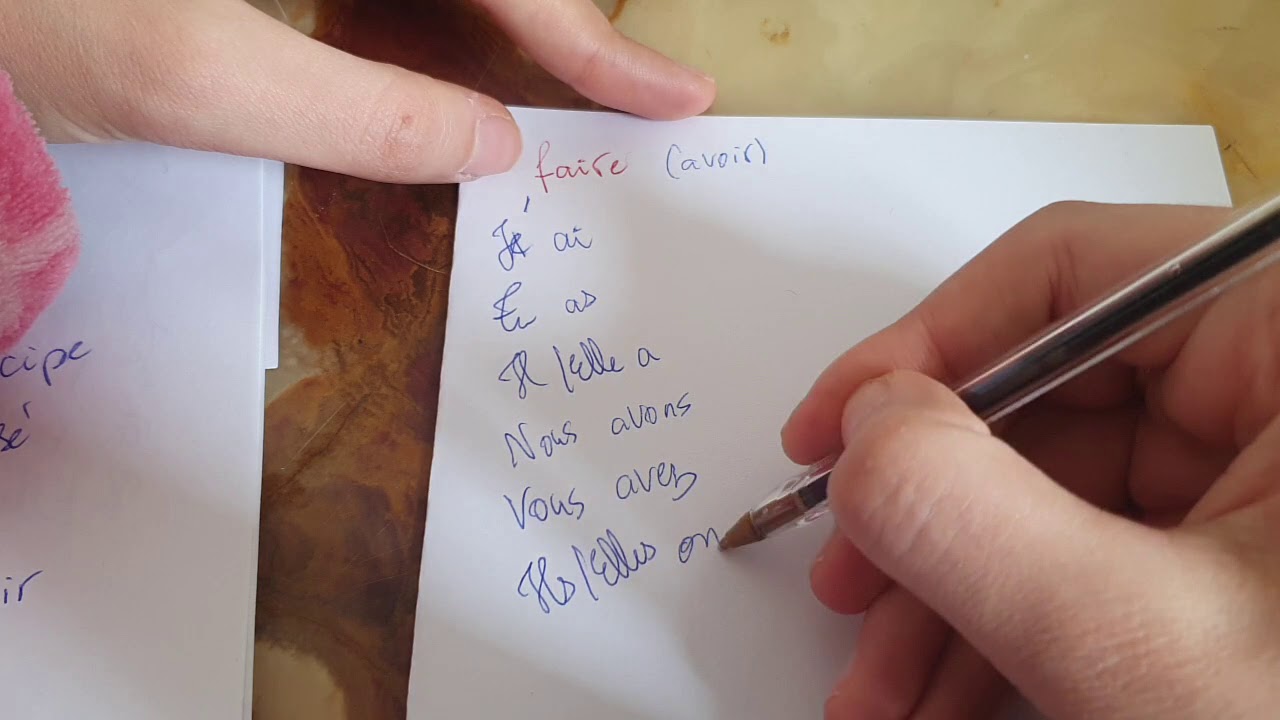 faire (avoir)
J' ai
Tu as
Il/Elle a
Nous avons
Vous avez
Ils/Elles on
cipe
sé
ir